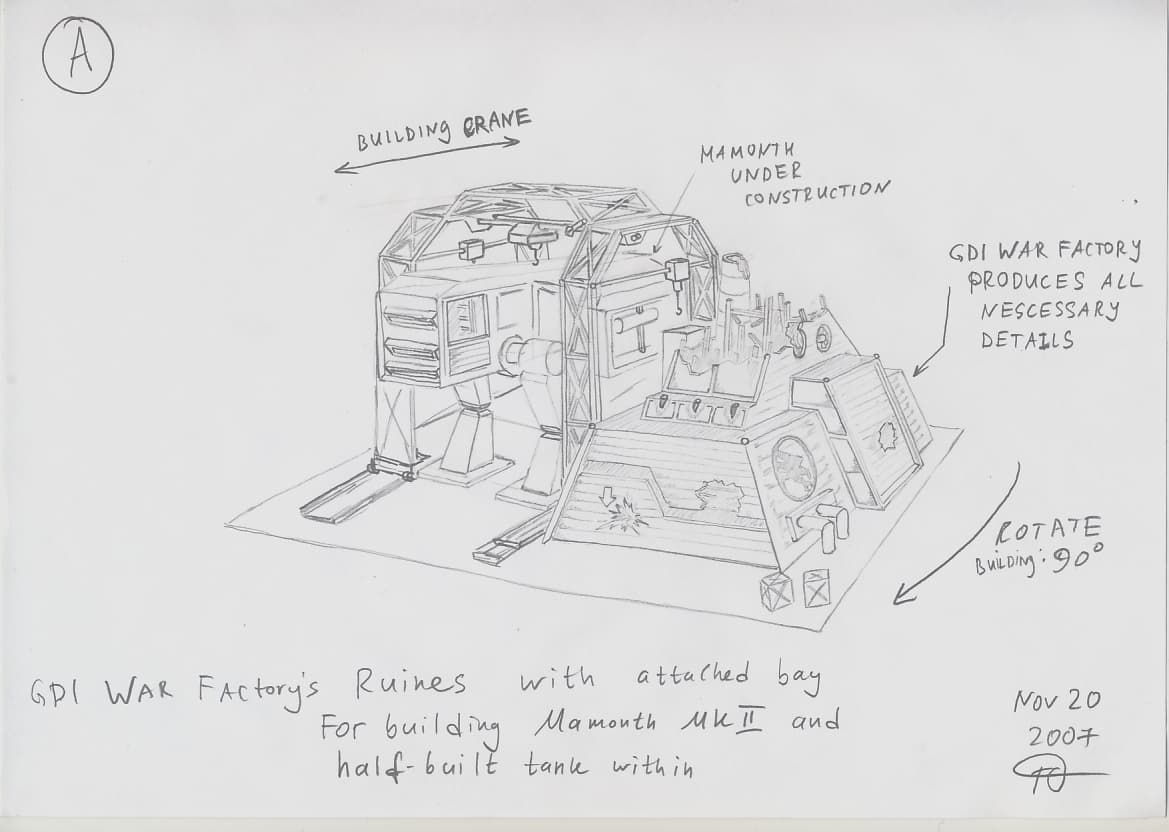 A
BUILDING CRANE
MAMONTH
UNDER
CONSTRUCTION
GDI WAR FACTORY
PRODUCES ALL
NESCESSARY
DETAILS
ROTATE
BUILDING: 90°
GDI WAR FACTORY'S RUINES with attached bay
For building Mamonth MK II and
half-built tank within
Nov 20
2007